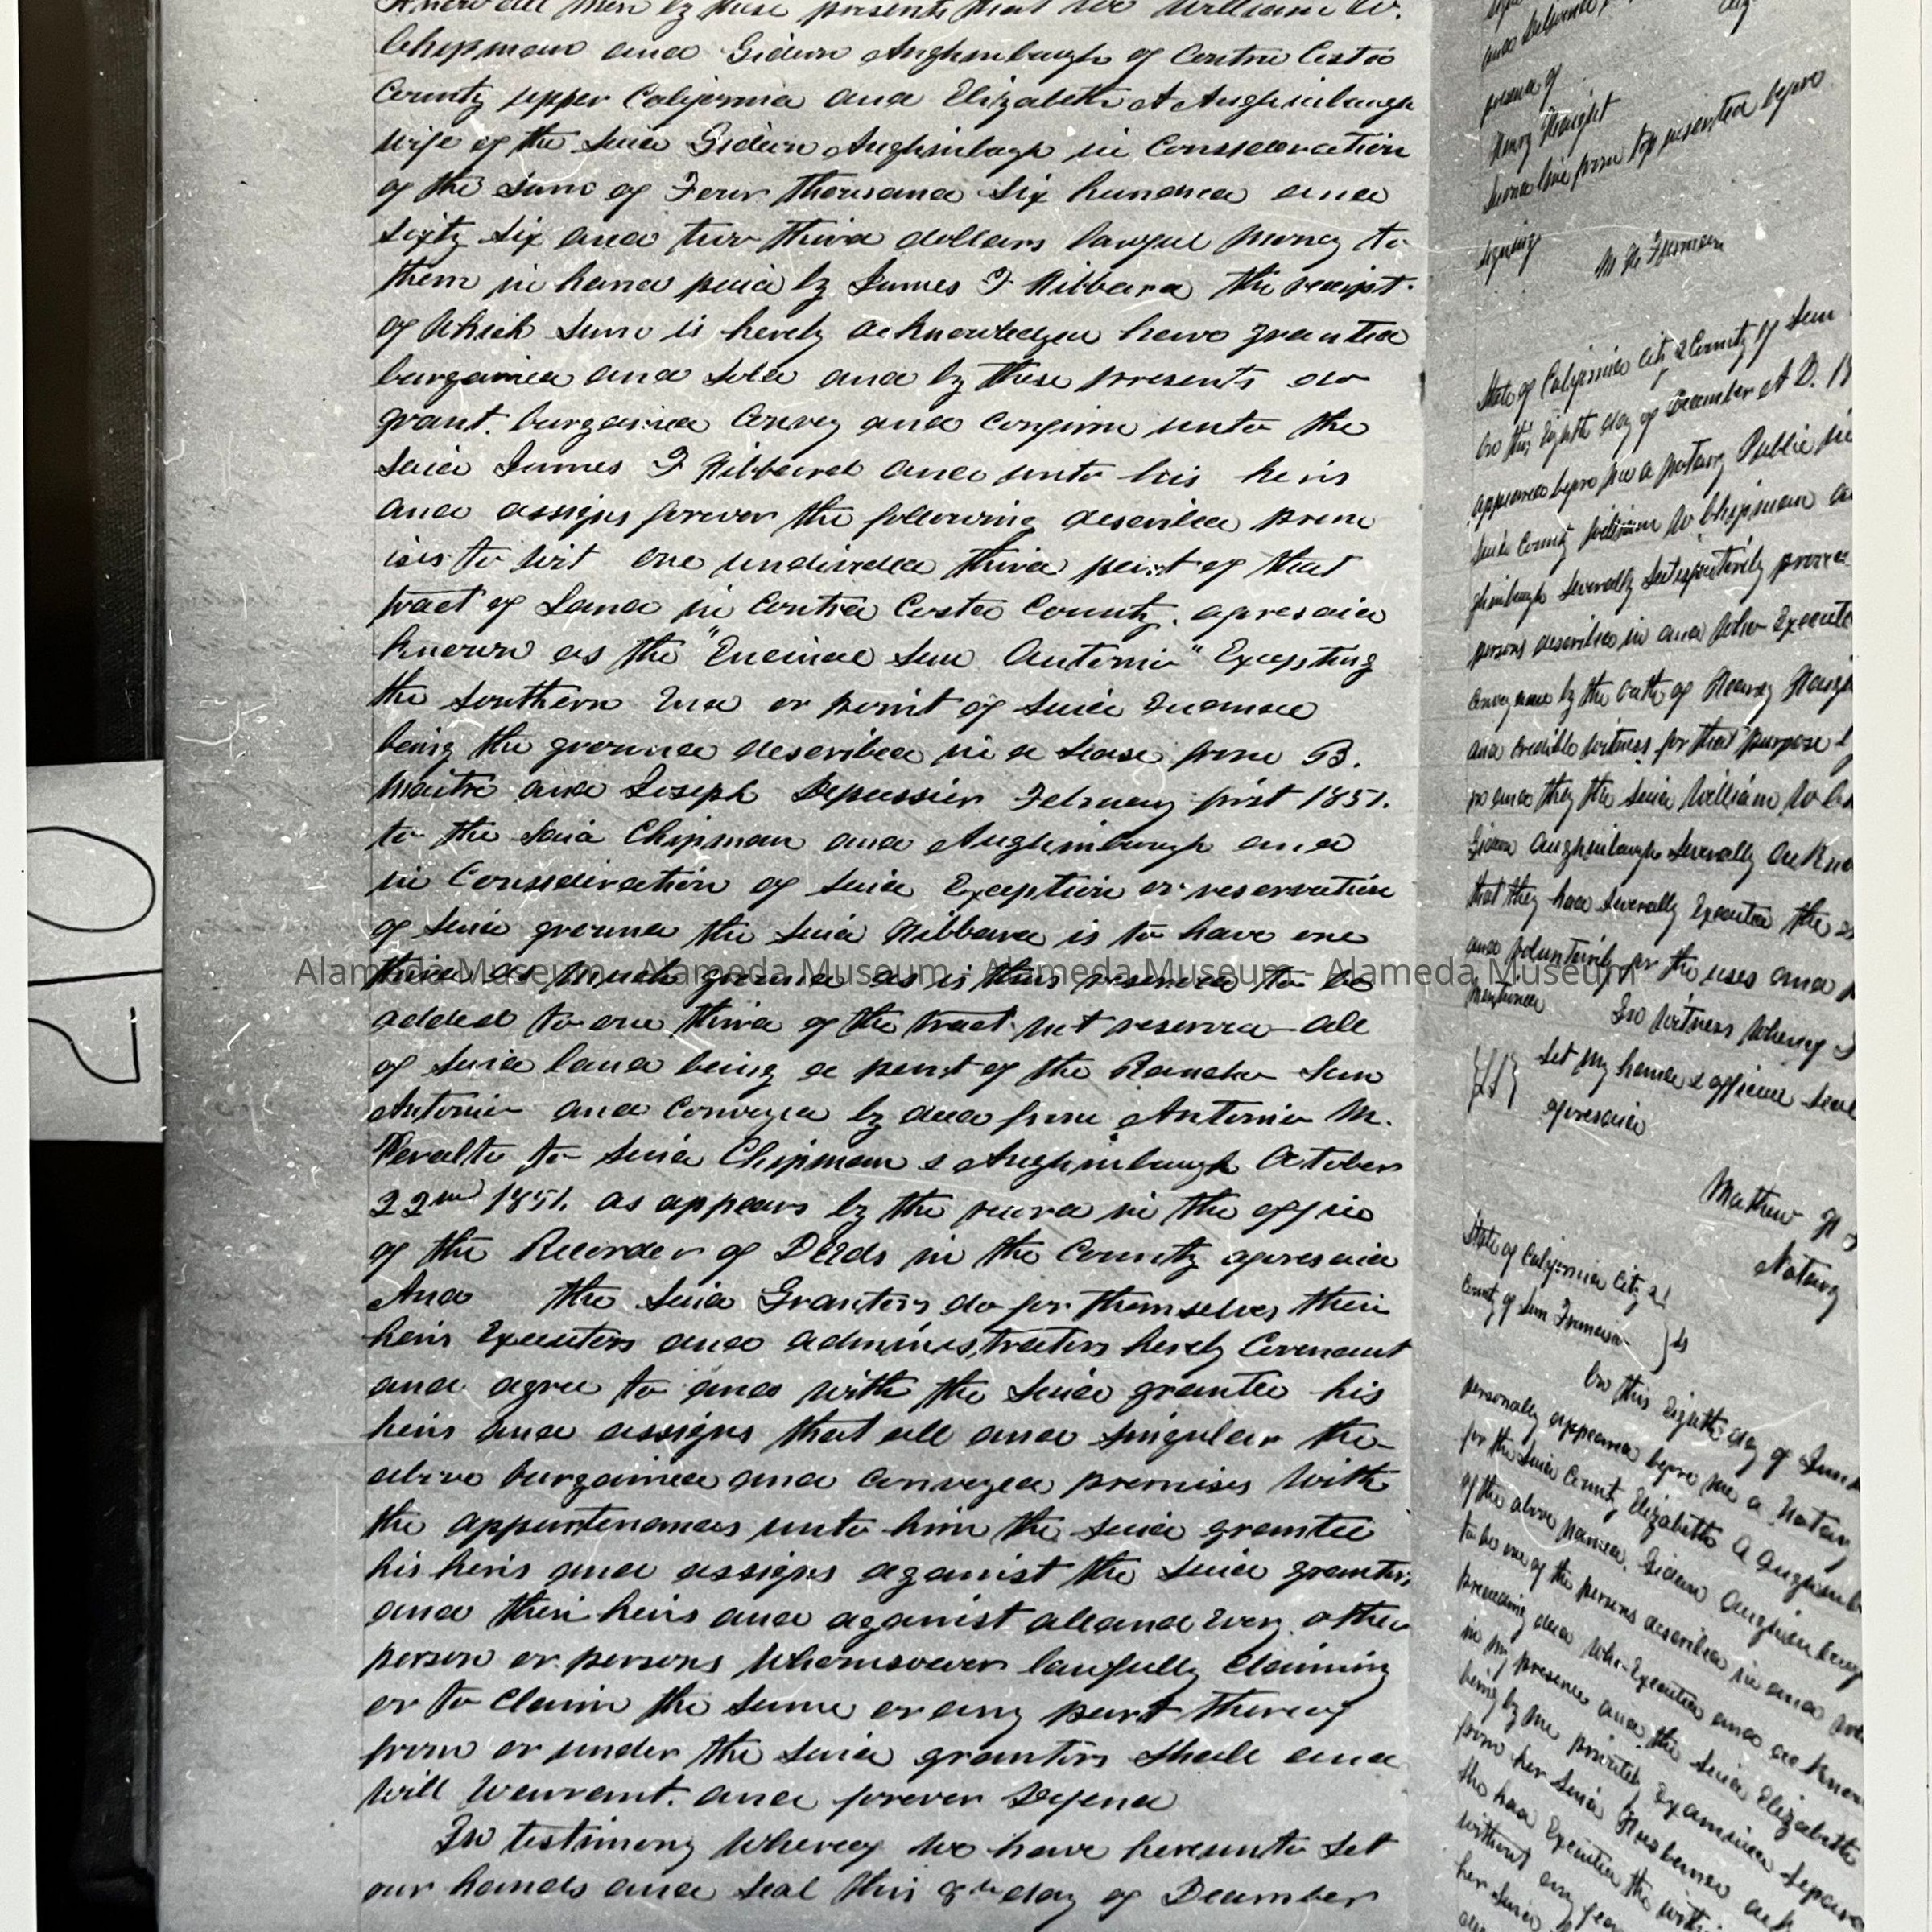 Know all men by these presents that we William W.
Chipman and Gideon Aughinbaugh of Contra Costa
County upper California and Elizabeth A Aughinbaugh
wife of the said Gideon Aughinbagh in Conssideration
of the sum of Four thousand Six hundred and
sixty six and two third dollars lawful money to
them in hand paid by James F Hibbard the receipt
of which sum is hereby acknowledged have granted
bargained and sold and by these presents do
grant. bargained Convey and Confirm unto the
said James F Hibbard and unto his heirs
and assigns forever the following described prem
ises to wit one undivided third part of that
tract of Land in Contra Costa County. aforesaid
known as the "Encinal San Antonio" Excepting
the Southern End or point of said
being the ground described in a Lease from B.
Maitre and Joseph Depassier February first 1851.
to the said Chipman and Aughinbaugh and
in Conssideration of said Exception or reservation
of said ground the said Hibbard is to have one
third as much ground as is thus reserved to be
added to one third of the tract not reserved all
of said land being a part of the Rancho San
Antonio and Conveyed by deed from Antonio M.
Peralto to said Chipman & Aughinbaugh October
22nd 1851. as appears by the record in the office
of the Recorder of Deeds in the County aforesaid
And the said Grantors do for themselves their
heirs Executors and administrators hereby Covenant
and agree to and with the said grantee his
heirs and assigns that all and singular the
above bargained and conveyed premises with
the appurtenances unto him the said grantee
his heirs and assigns against the said grantors
and their heirs and against all and every other
person or persons Whomsoever lawfully Claiming
or to Claim the same or any part thereof
from or under the said grantors shall and
will Warrant. and forever Defend
In testimony Whereof We have hereunto Set
our hands and seal this 8th day of December
210
Alameda Museum - Alameda Museum - Alameda Museum - Alameda Museum
presence of
Henry Haight
second line from top inserted before
signing
State of California City & County of San
On this Eighth day of December A D. 18
appeared before me a Notary Public in
said County William W Chipman
ghinbaugh Severally Satisfactorily proved
persons described in and who Execute
Conveyance by the Oath of Henry Haigh
and Credible witness for that purpose
and they the said William W
Gideon Aughinbaugh Severally ackno
that they had Severally Executed the
and voluntarily for the uses and
mentioned In Witness Whereof I
{LS} Set my hand & official Seal
aforesaid
Mathew
Notary
State of California City &
County of San Francisco } ss
On this Eighth day of
personally appeared before me a Notary
for the said County Elizabeth A Aughinb
of the above named. Gideon Aughinbaug
to be one of the persons described in and
preceding deed who Executed and acknow
in my presence and the said Elizabeth
being by me privately Examined Separa
from her said Husband
she had Executed the with
without any fear
her said